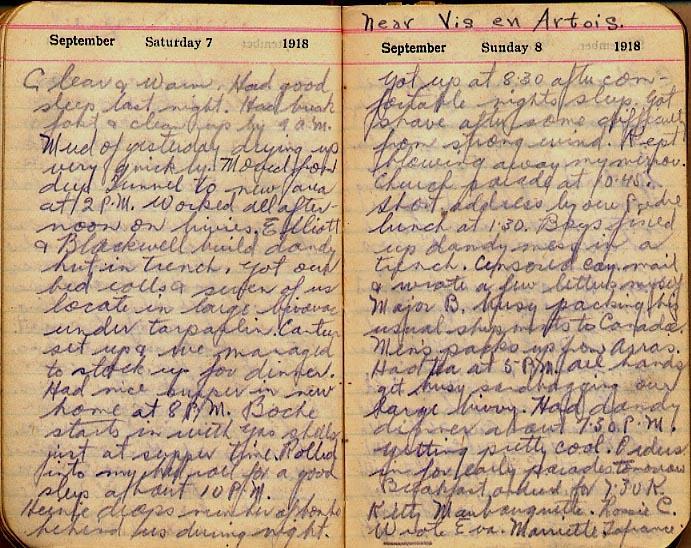 September Saturday 7 1918
Clear & Warm. Had good
sleep last night. Had break
fast & clean up by 9 a.m.
Mud of yesterday drying up
very quickly. Moved from
deep tunnel to new area
at 12 P.M. Worked all after-
noon on bivies. Elliott
& Blackwell build dandy
hut in trench. Got our
bed rolls & seven of us
locate in large bivouac
under tarpaulin. Canteen
set up & we managed
to stock up for dinner.
Had nice supper in new
home at 8 P.M. Boche
starts in with gas shells
just at supper time. Rolled
into my bed roll for a good
sleep about 10 P.M.
Heinie drops number of bombs
behind us during night.
Near Vis en Artois.
September Sunday 8 1918
Got up at 8:30 after com-
fortable nights sleep. Got
shave after some difficulty
from strong wind. Kept
blowing away my mirror.
Church parade at 10:45.
Short address by our Padre
lunch at 1:30. Boys fixed
up dandy mess in a
trench. Censored coy. mail
& wrote a few letters myself
Major B. busy packing his
usual shipments to Canada.
Men's packs up from Arras.
Had tea at 5 P.M. All hands
get busy sandbagging our
large bivvy. Had dandy
dinner about 7:30 P.M.
getting pretty cool. Orders
in for early parades tomorrow
Breakfast ordered for 7:30
Wrote Eva.